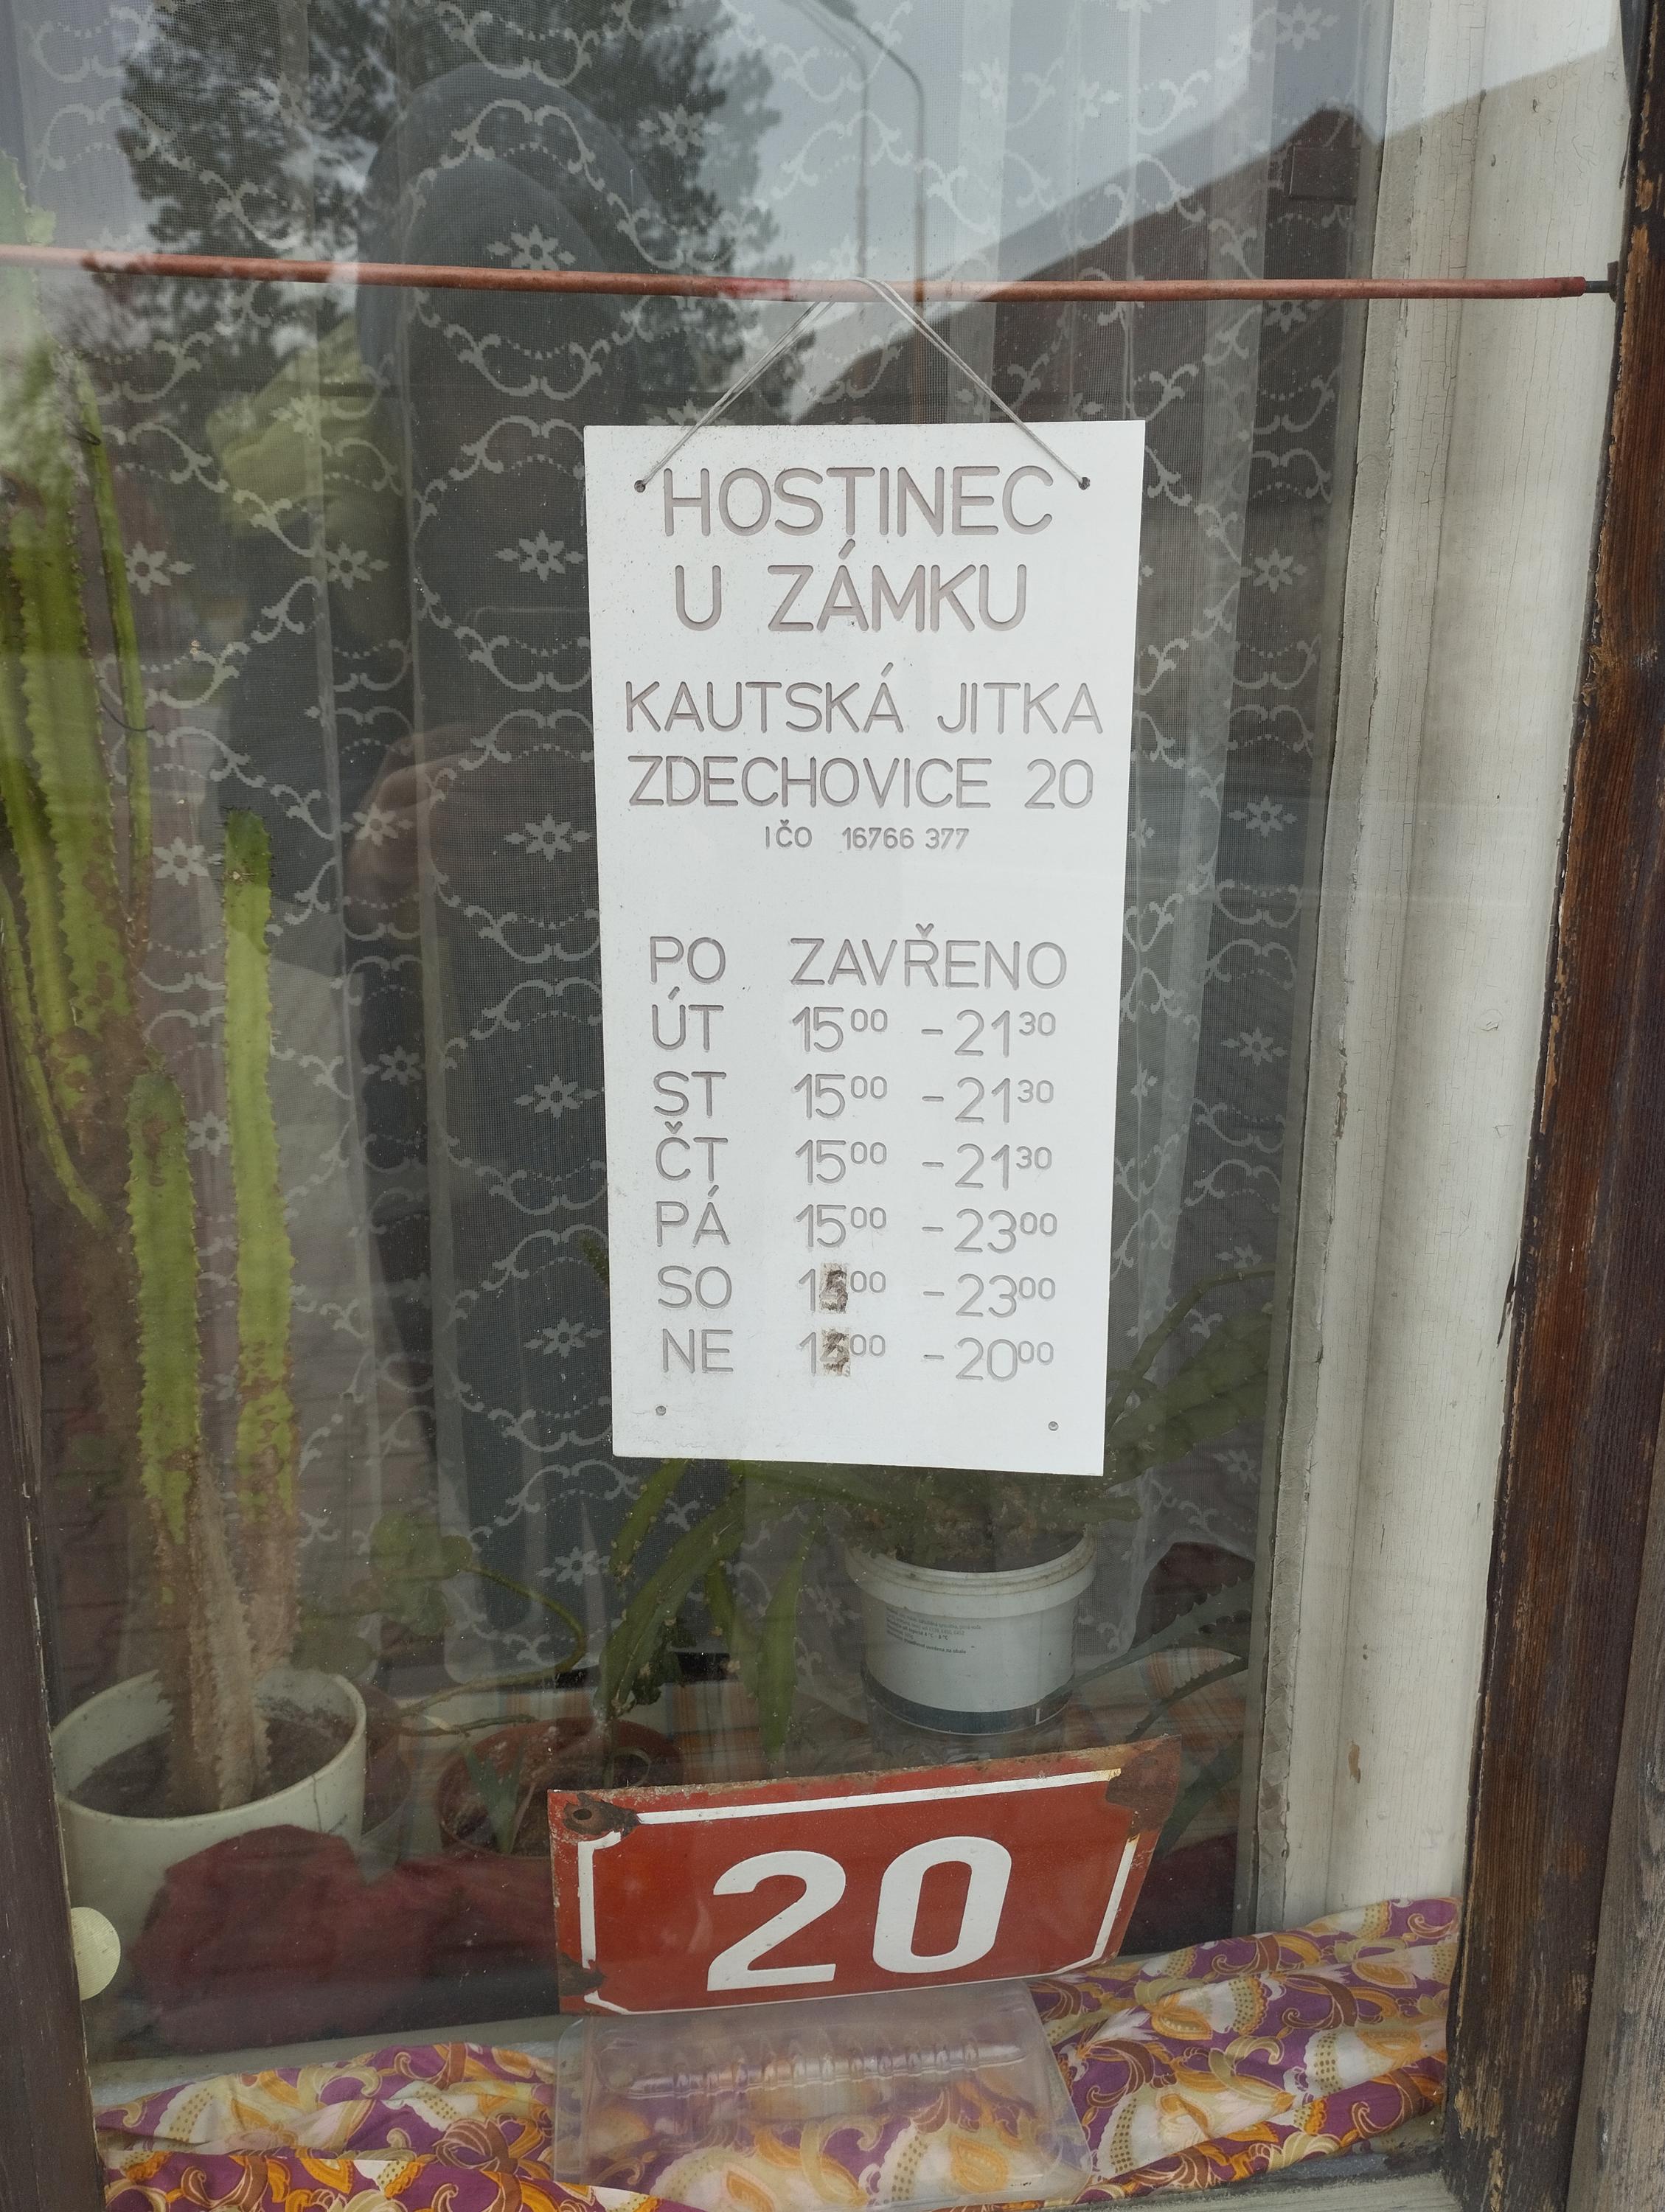 HOSTINEC
U ZÁMKU
KAUTSKÁ JITKA
ZDECHOVICE 20
IČO 16766 377
PO ZAVŘENO
ÚT 15⁰⁰ - 21³⁰
ST 15⁰⁰ - 21³⁰
ČT 15⁰⁰ - 21³⁰
PÁ 15⁰⁰ - 23⁰⁰
SO - 23⁰⁰
NE - 20⁰⁰
20